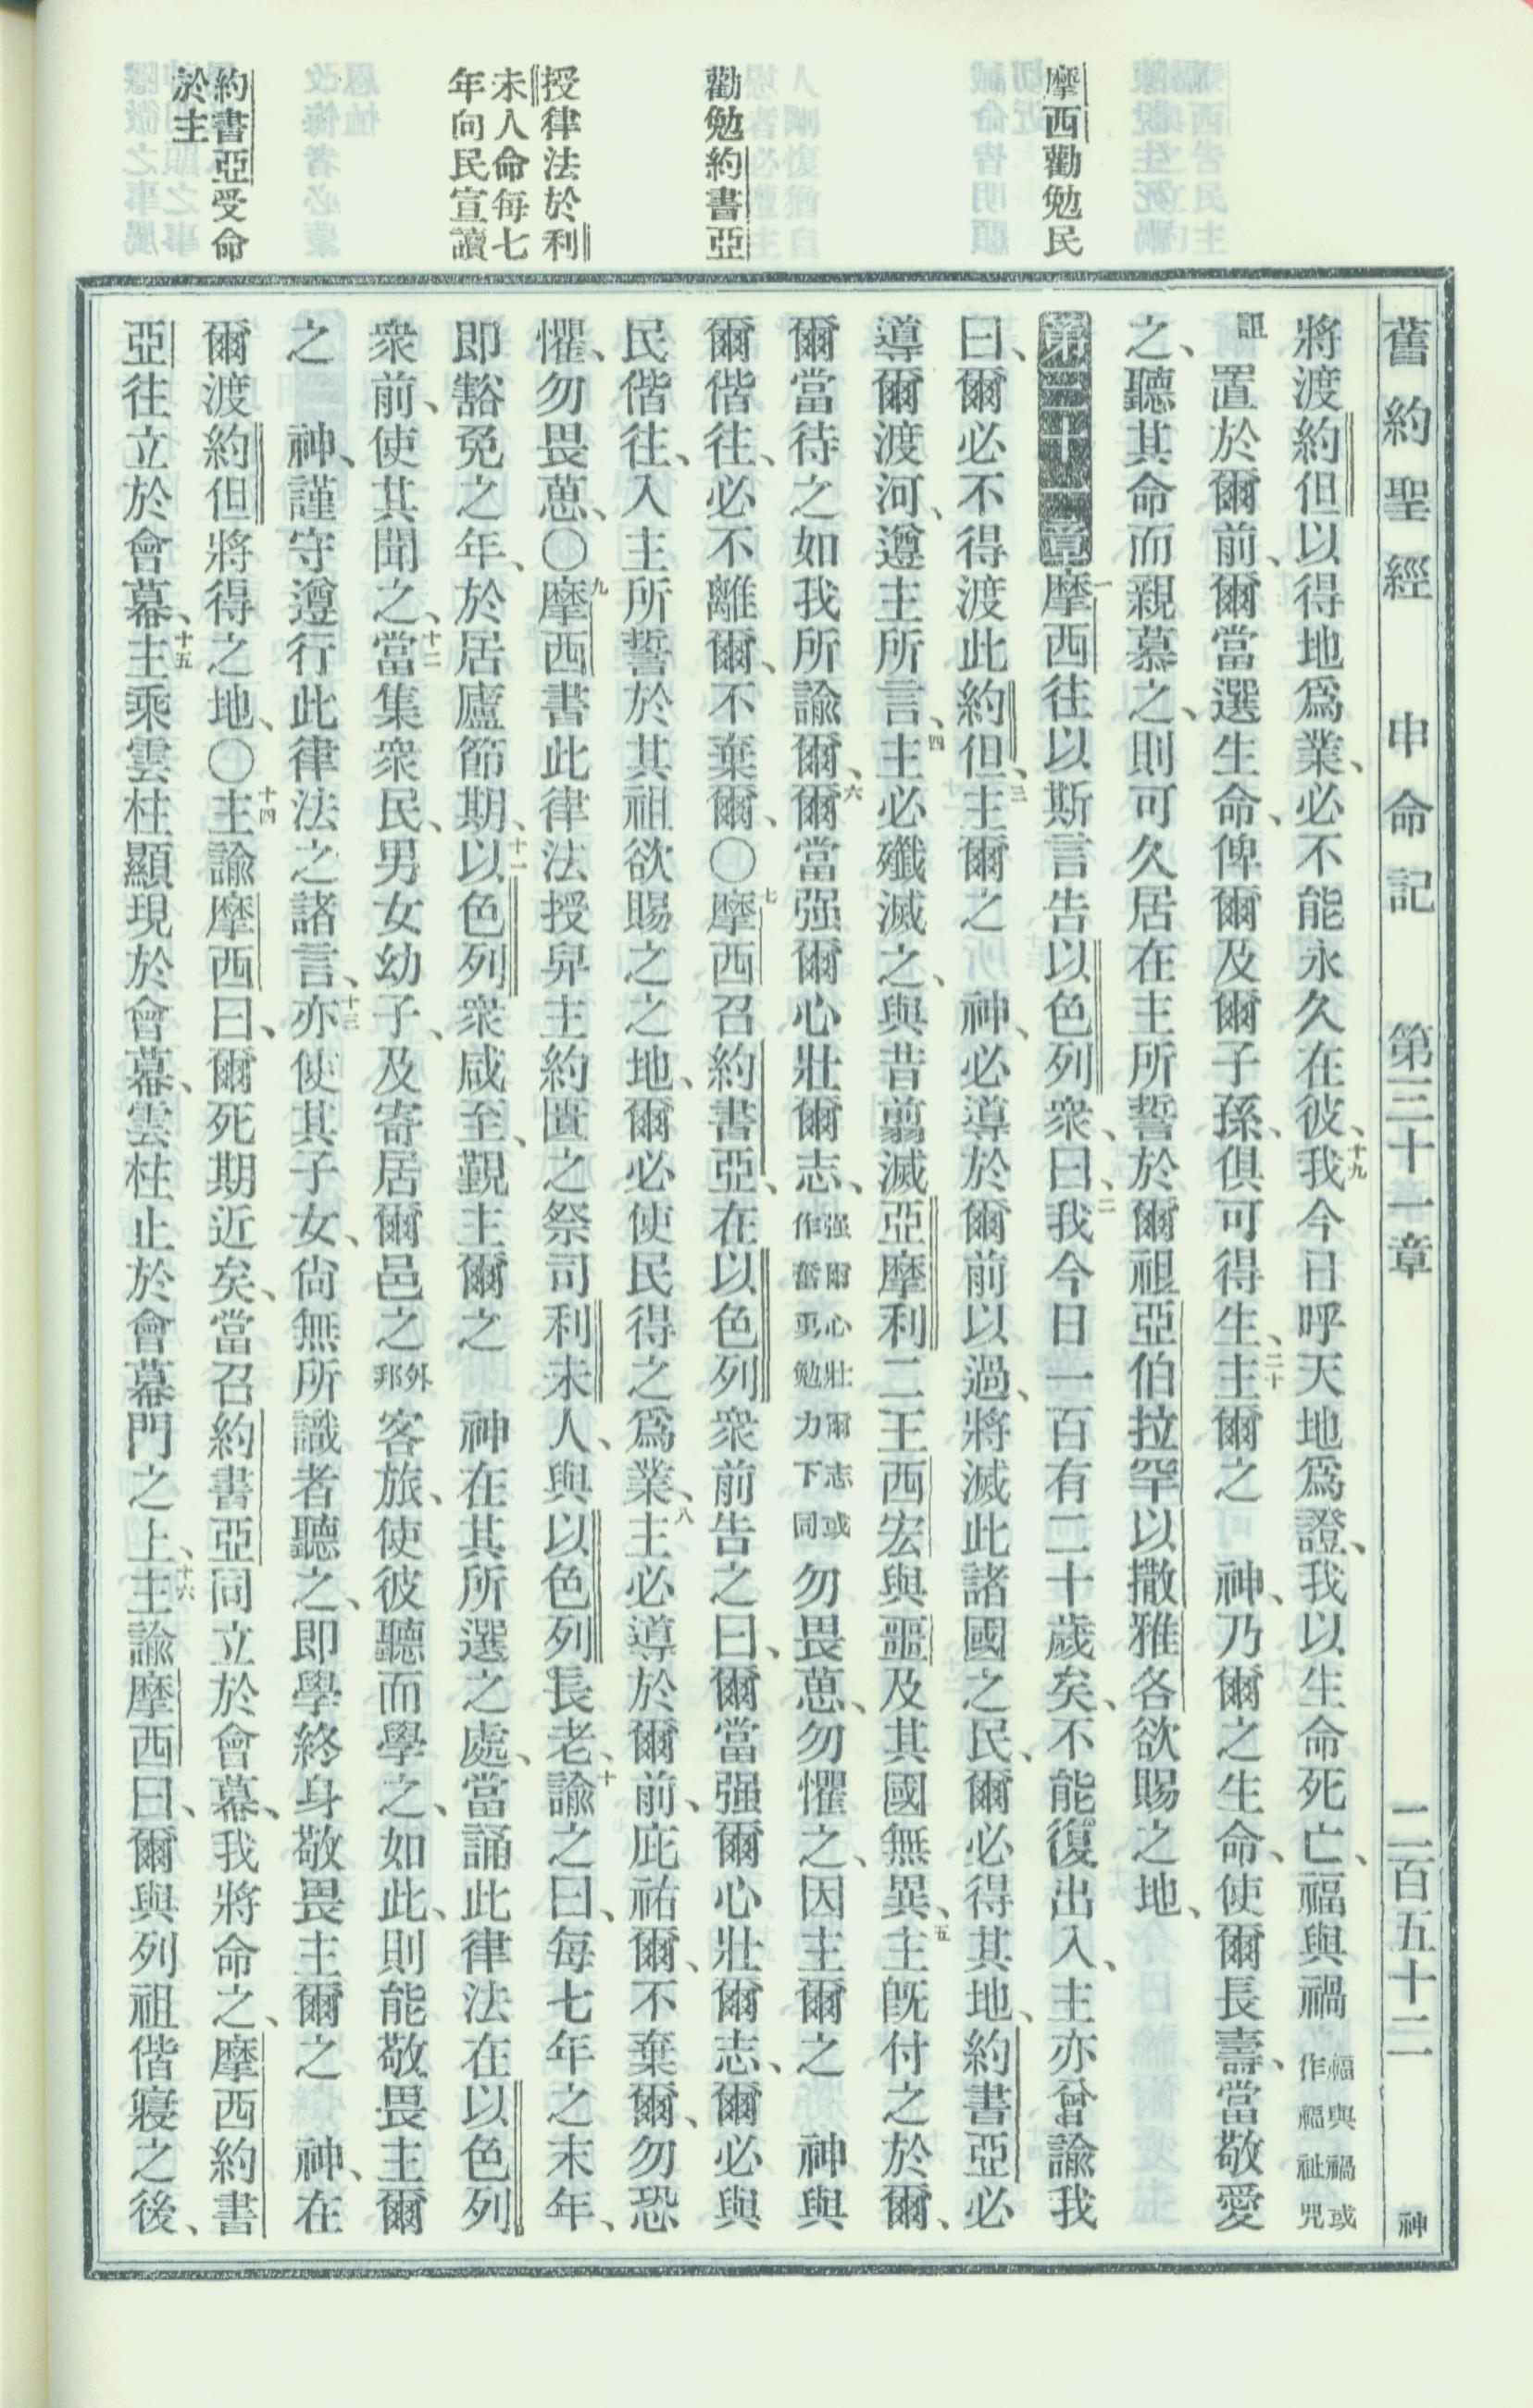 舊約聖經 申命記 第三十一章 二百五十二 神
摩西勸勉民
勸勉約書亞
授律法於利
未人命每七
年向民宣讀
約書亞受命
於主
將渡約但以得地爲業、必不能永久在彼、十九我今日呼天地爲證、我以生命死亡、福與禍福與禍或作福祉咒
詛置於爾前、爾當選生命、俾爾及爾子孫、俱可得生、二十主爾之 神、乃爾之生命、使爾長壽、當敬愛
之、聽其命而親慕之、則可久居在主所誓於爾祖亞伯拉罕以撒雅各欲賜之地、
第三十一章一摩西往以斯言告以色列衆、曰、二我今日一百有二十歲矣、不能復出入、主亦曾諭我
曰、爾必不得渡此約但、三主爾之 神、必導於爾前以過、將滅此諸國之民、爾必得其地、約書亞必
導爾渡河、遵主所言、四主必殲滅之、與昔翦滅亞摩利二王西宏與噩及其國無異、五主旣付之於爾、
爾當待之如我所諭爾、六爾當强爾心壯爾志、强爾心壯爾志或作奮勇勉力下同勿畏葸、勿懼之、因主爾之 神與
爾偕往、必不離爾、不棄爾、〇七摩西召約書亞、在以色列衆前告之曰、爾當强爾心壯爾志、爾必與
民偕往、入主所誓於其祖欲賜之之地、爾必使民得之爲業、八主必導於爾前、庇祐爾、不棄爾、勿恐
懼、勿畏葸、〇九摩西書此律法授畀主約匱之祭司利未人、與以色列長老、十諭之曰、每七年之末年、
即豁免之年、於居廬節期、十一以色列衆咸至、覲主爾之 神在其所選之處、當誦此律法在以色列
衆前、使其聞之、十二當集衆民、男女幼子、及寄居爾邑之外邦客旅、使彼聽而學之、如此、則能敬畏主爾
之 神、謹守遵行此律法之諸言、十三亦使其子女、尙無所識者聽之、即學終身敬畏主爾之 神、在
爾渡約但將得之地、〇十四主諭摩西曰、爾死期近矣、當召約書亞同立於會幕、我將命之、摩西約書
亞往立於會幕、十五主乘雲柱顯現於會幕、雲柱止於會幕門之上、十六主諭摩西曰、爾與列祖偕寢之後、